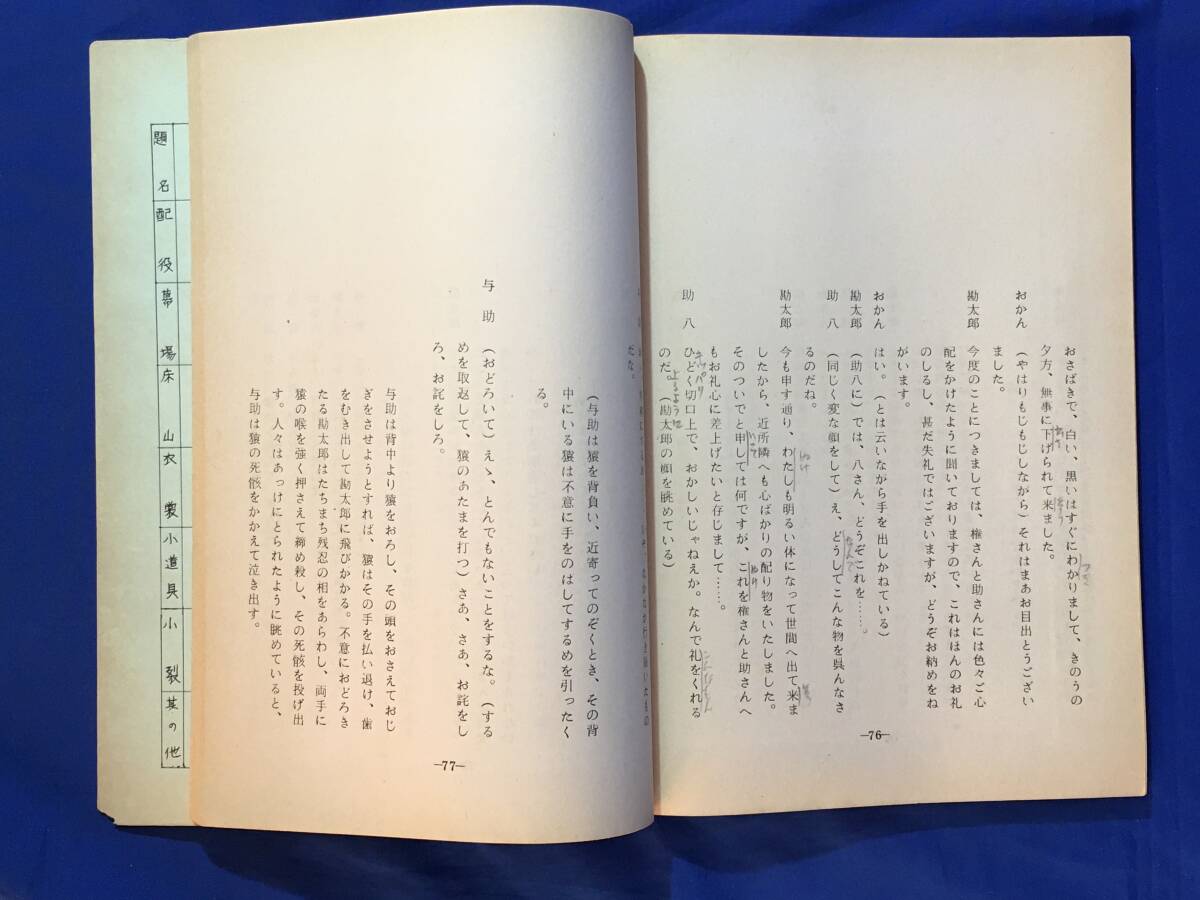 おさばきで、白い、黒いはすぐにわかりまして、きのうの
夕方、無事に下げられて来ました。
おかん (やはりもじもじしながら)それはまあお目出とうござい
ました。
勘太郎 今度のことにつきましては、権さんと助さんには色々ご心
配をかけたように聞いておりますので、これはほんのお礼
のしるし、甚だ失礼ではございますが、どうぞお納めをね
がいます。
おかん はい。(とは云いながら手を出しかねている)
勘太郎 (助八に)では、八さん、どうぞこれを……。
助八 (同じく変な顔をして)え、どうしてこんな物を呉んなさ
るのだね。
勘太郎 今も申す通り、わたしも明るい体になって世間へ出て来ま
したから、近所隣へも心ばかりの配り物をいたしました。
そのついでと申しては何ですが、これを権さんと助さんへ
もお礼心に差上げたいと存じまして……。
助八 ひどく切口上で、おかしいじゃねえか。なんで礼をくれる
のだ。(勘太郎の顔を眺めている)
―76―
だな。
(与助は猿を背負い、近寄ってのぞくとき、その背
中にいる猿は不意に手をのはしてするめを引ったく
る。
与助 (おどろいて)えゝ、とんでもないことをするな。(する
めを取返して、猿のあたまを打つ)さあ、さあ、お詫をし
ろ、お詫をしろ。
与助は背中より猿をおろし、その頭をおさえておじ
ぎをさせようとすれば、猿はその手を払い退け、歯
をむき出して勘太郎に飛びかかる。不意におどろき
たる勘太郎はたちまち残忍の相をあらわし、両手に
猿の喉を強く押さえて締め殺し、その死骸を投げ出
す。人々はあっけにとられたように眺めていると、
与助は猿の死骸をかかえて泣き出す。
―77―
題名
配役
幕場
床山
衣裳
小道具
小裂
其の他